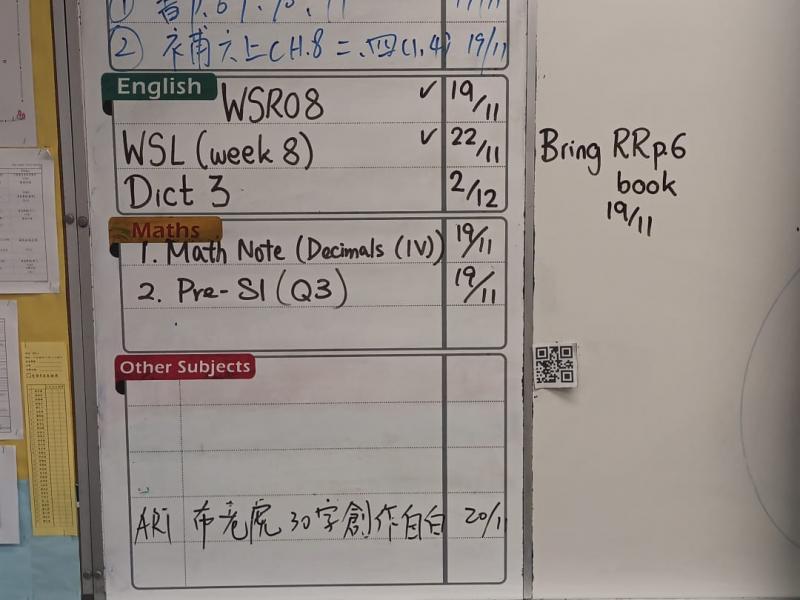 ② 衣補六上CH.8 二、四(1,4) 19/11
English
WSR08 ✓ 19/11
WSL (week 8) ✓ 22/11
Dict 3 2/12
Maths
1. Math Note (Decimals (IV)) 19/11
2. Pre-S1 (Q3) 19/11
Other Subjects
ARt 布老虎30字創作自白 20/11
Bring RRp.6
book
19/11